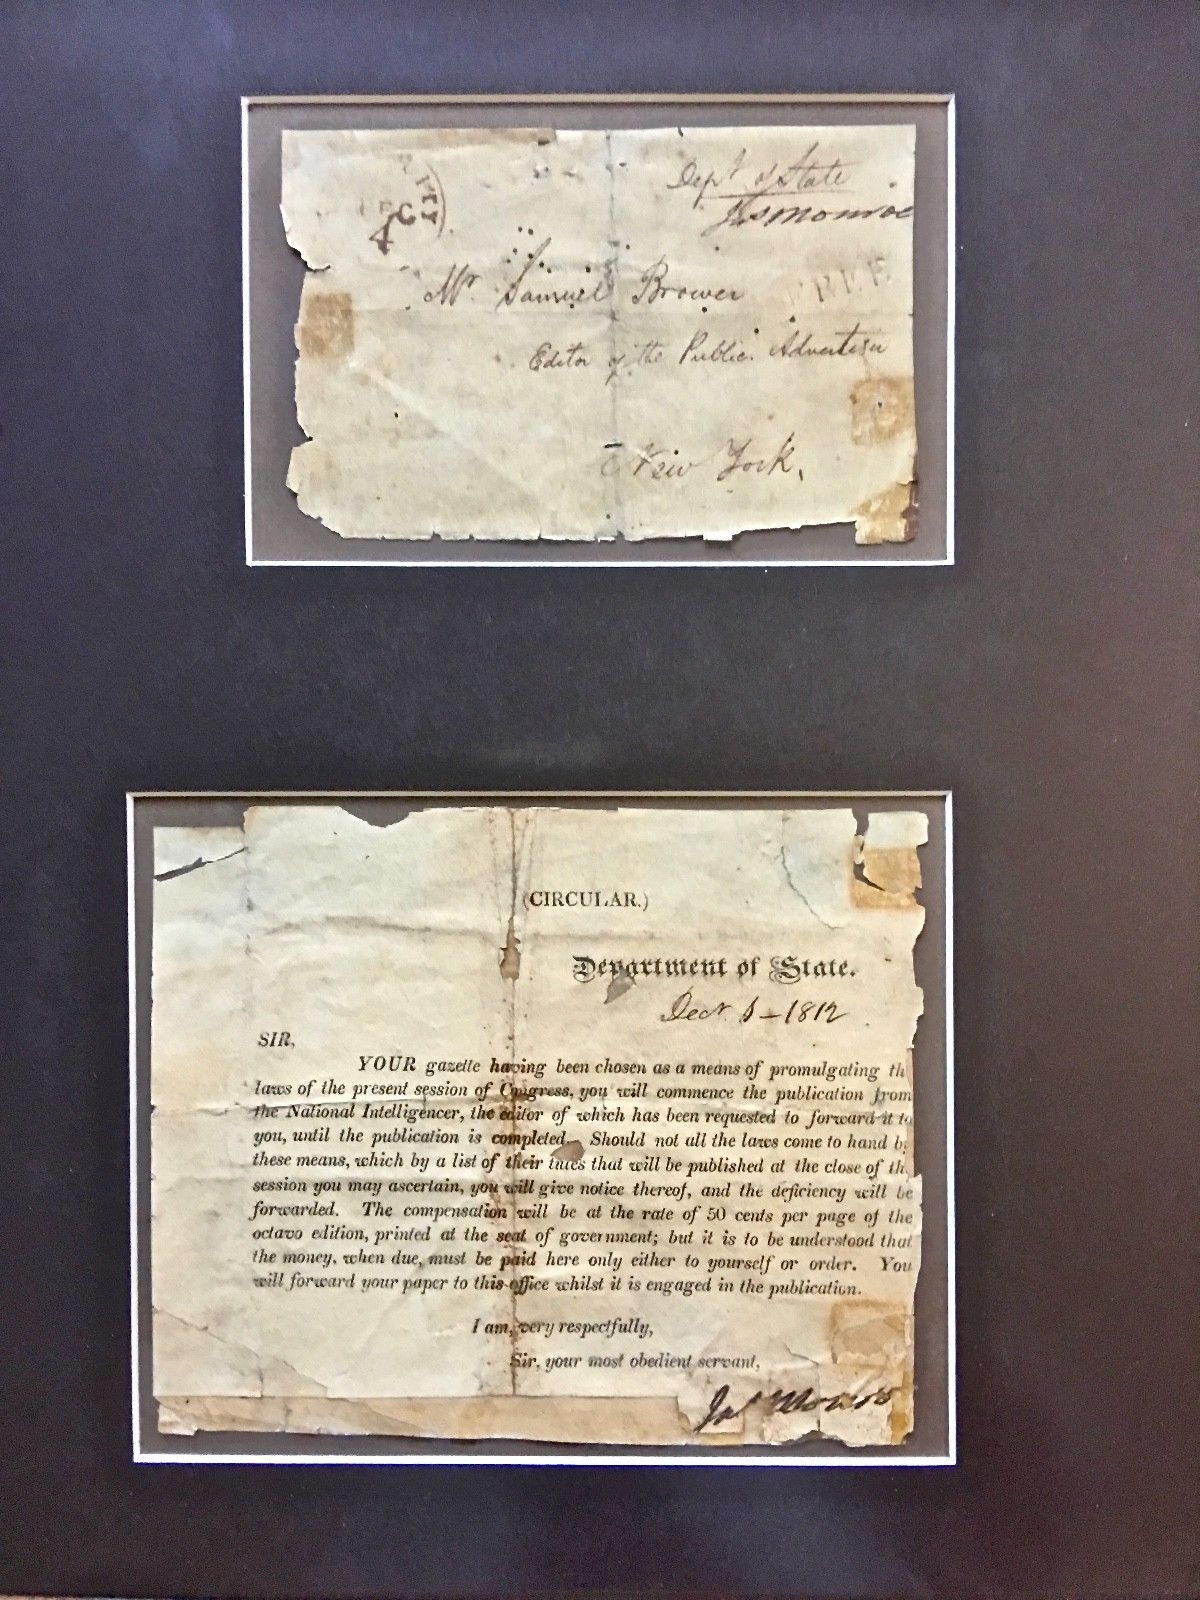 Dept of State
Jas Monroe
FREE
Mr. Samuel Brower
Editor of the Public Advertiser
New York,
(CIRCULAR.)
Department of State.
Decr 1 - 1812
SIR,
YOUR gazette having been chosen as a means of promulgating th
laws of the present session of Congress, you will commence the publication from
the National Intelligencer, the editor of which has been requested to forward it to
you, until the publication is completed. Should not all the laws come to hand by
these means, which by a list of their titles that will be published at the close of th
session you may ascertain, you will give notice thereof, and the deficiency will be
forwarded. The compensation will be at the rate of 50 cents per page of the
octavo edition, printed at the seat of government; but it is to be understood that
the money, when due, must be paid here only either to yourself or order. You
will forward your paper to this office whilst it is engaged in the publication.
I am, very respectfully,
Sir, your most obedient servant,
Jas Monroe